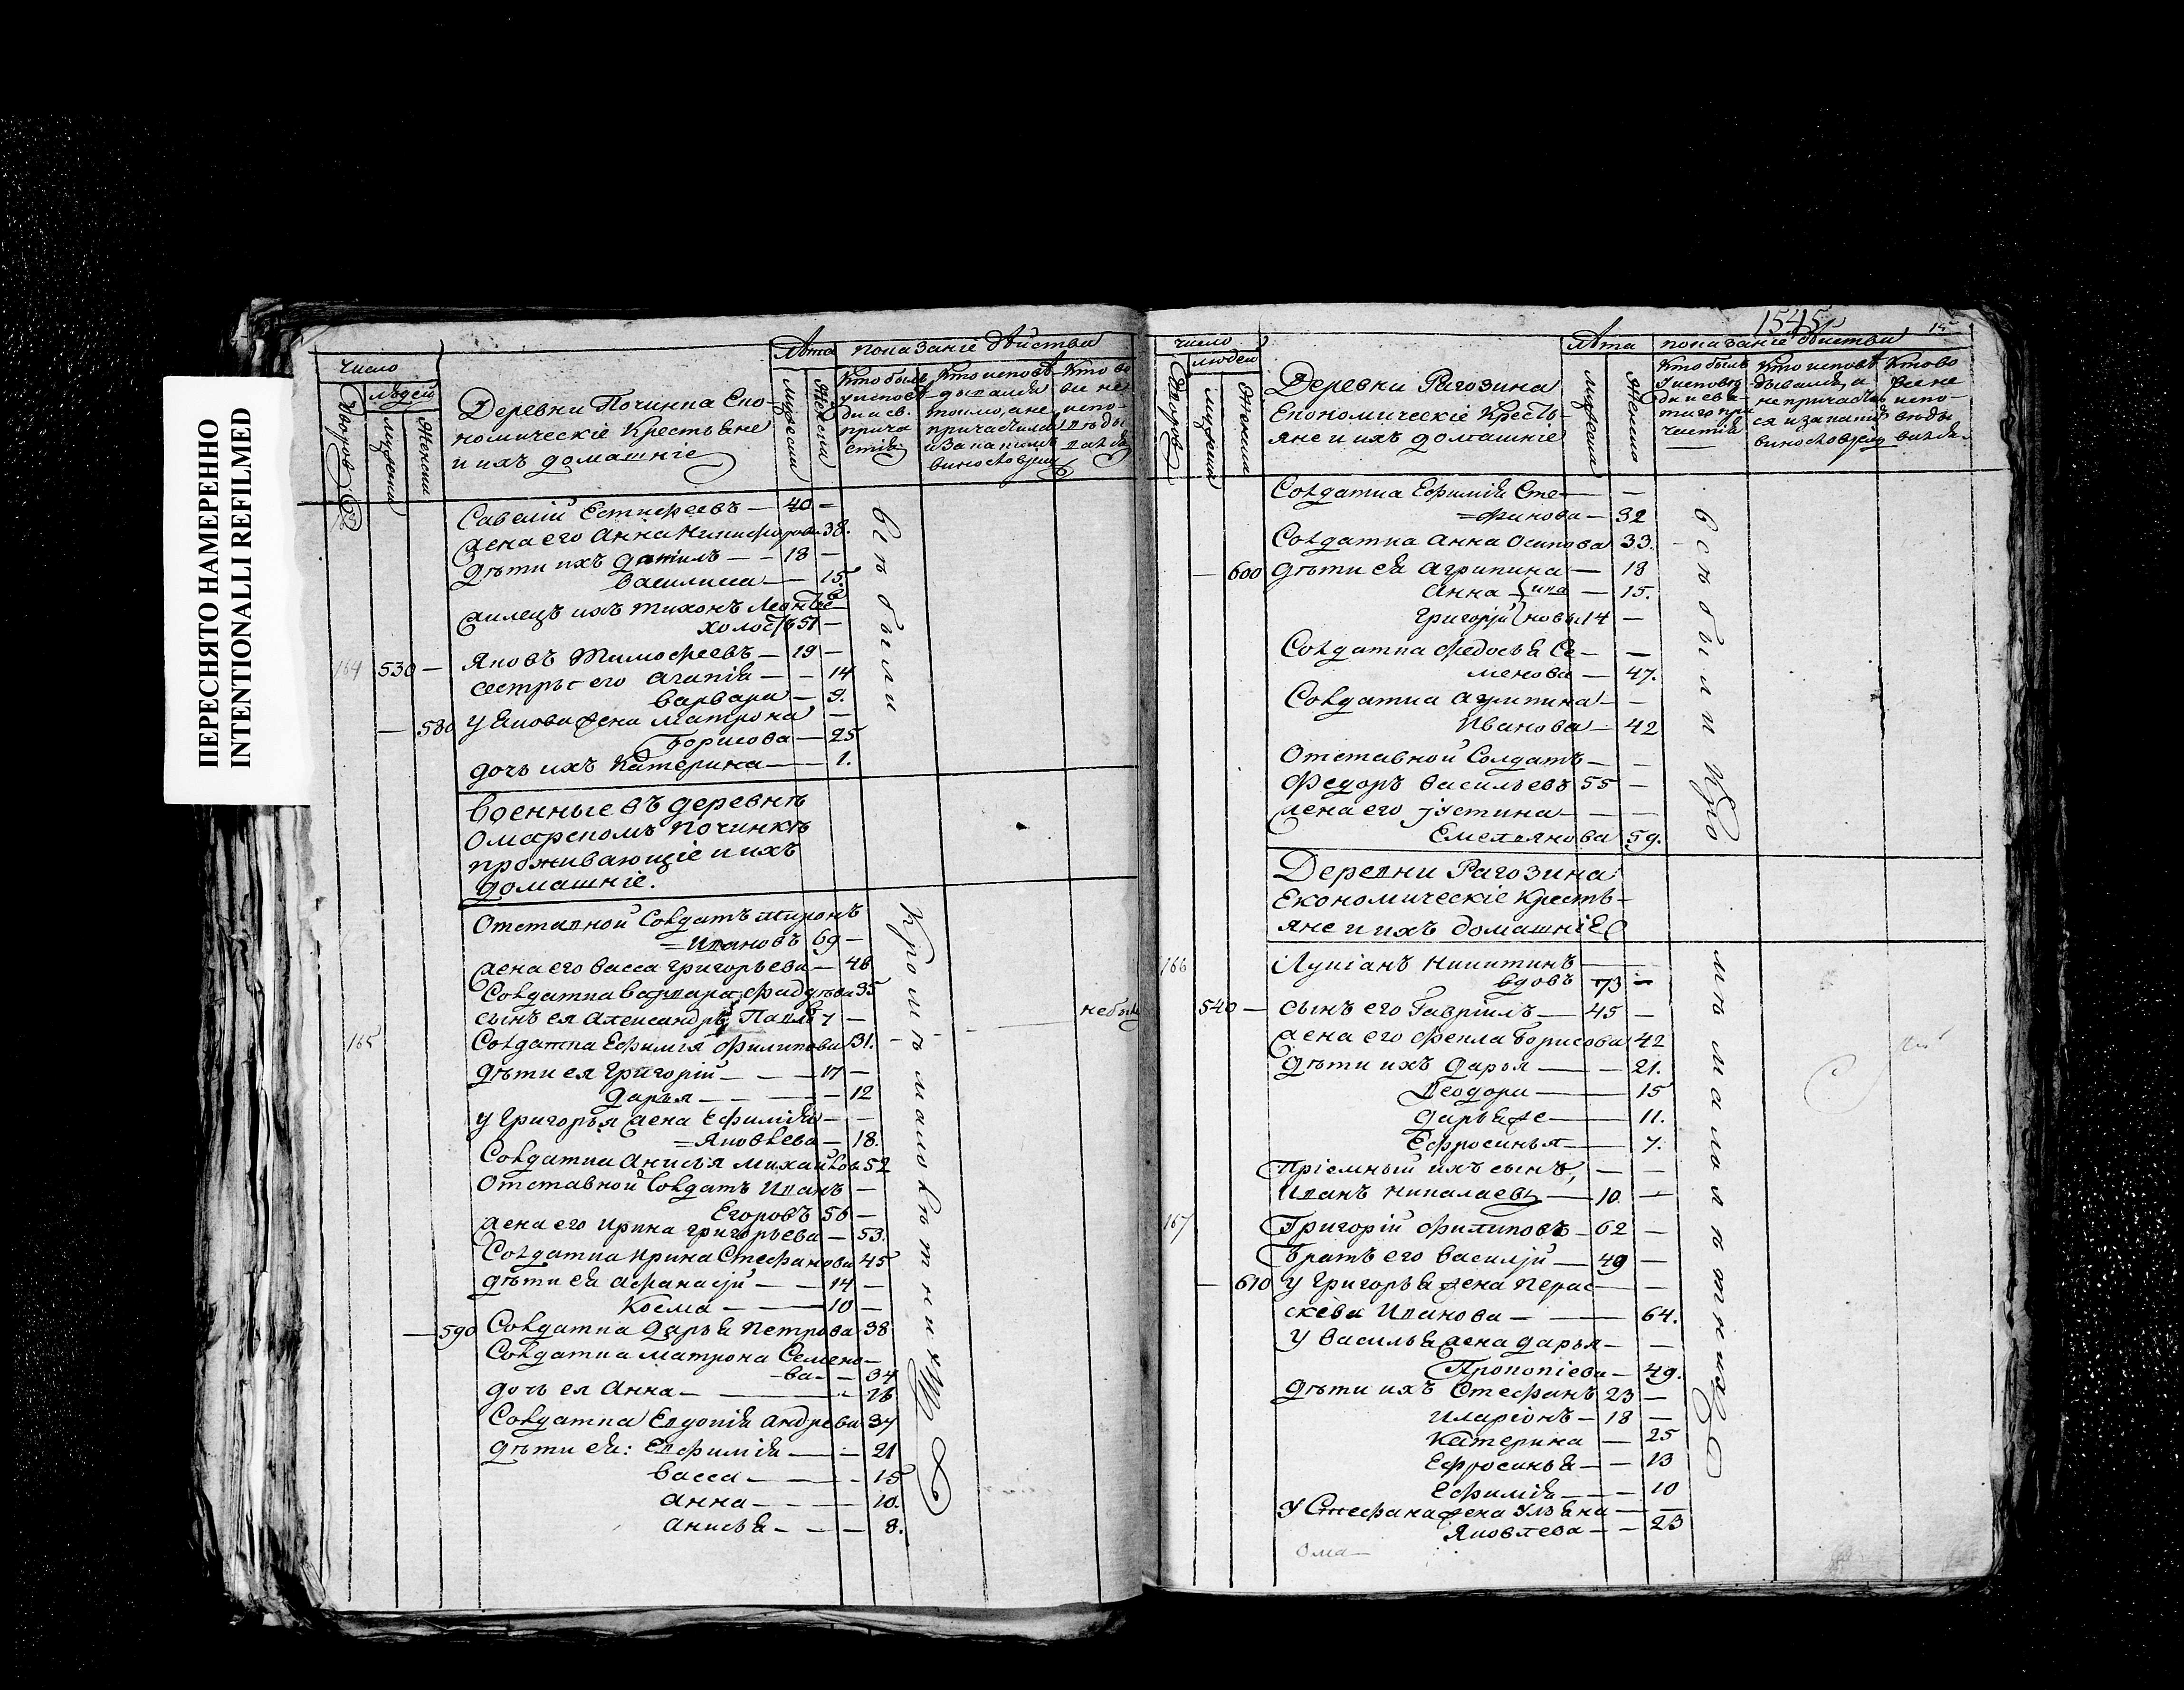 ПЕРЕСНЯТО НАМЕРЕННО
INTENTIONALLI REFILMED
число
людей
Дворовъ
мужеска
Женска
Деревни Починка Еко-
номическіе Крестьяне
и ихъ домашніе
Лѣта
мужеска
Женска
показаніе дѣйства
Кто былъ
у испов-
ди и св.
прича
стія
Кто исповѣ-
дывался
токмо, а не
причастился
и за какимъ
винословіем
Кто во
все не
испо-
вѣды
вался
163
Савелій Естифеевъ — 40 —
жена его Анна Никифорова 38.
дѣти ихъ Данилъ — — 18 —
Василиса — 15.
жилецъ ихъ Тихонъ Леонтье
холостъ 51 —
164 530 — Яковъ Тимофеевъ — 19 —
сестры его Агапія — — 14
Варвара — 9.
— 580 у Якова жена Матрона —
Борисова — 25
дочь ихъ Катерина — 1.
всѣ были
Военные въ деревнѣ
Омарском Починкѣ
проживающіе и ихъ
домашніе.
Отставной Солдатъ Миронъ
=Ивановъ 69 —
жена его Васса Григорьева — 46
Солдатка Варвара Фадѣева 35
сынъ ея Александръ Павл 7 —
не был
165 Солдатка Ефимія Филипова 31.
дѣти ея Григорій — — 17 —
Дарья — — — 12
у Григорья жена Ефимія — —
=Яковлева — 18.
Солдатка Анисья Михайлова 52
Отставной Солдатъ Иванъ —
Егоровъ 56 —
жена его Ирина Григорьева — 53.
Солдатка Ирина Стефанова 45
дѣти ея Афанасій — — 14 —
Косма — — 10 —
— 590 Солдатка Дарья Петрова 38
Солдатка Матрона Семено-
ва — — 34
дочь ея Анна — — 26
Солдатка Евдокія Андреева 37
дѣти ея: Евфимія — — 21
Васса — — 15
Анна — — — 10.
Анисья — — — 8.
Кромѣ малолѣтнихъ
1545
число
людей
Дворовъ
мужеска
Женска
Деревни Рагозина
Економическіе Кресть-
яне и ихъ домашніе
Лѣта
мужеска
Женска
показаніе дѣйства
Кто былъ
у исповѣ
ди и свя-
таго при
частія
Кто исповѣ
дывался, а
не причастил
ся и за каким
винословіем
Кто во
все не
испо-
вѣды
вался
Солдатка Ефимія Сте — —
=фанова — 32
Солдатка Анна Осипова 33.
— 600 дѣти ея Агрипина — 18
Анна — 15.
Григорій 14 —
Солдатка Федосья Се — —
менова — 47.
Солдатка Агрипина — —
Иванова — 42
Отставной Солдатъ — —
Федоръ Васильевъ 55 —
жена его Іустина — —
Емельянова 59.
всѣ были Кро
Деревни Рагозина
Економическіе Кресть-
яне и ихъ домашніе
166 Лукіанъ Никитинъ —
вдовъ 73 —
540 — сынъ его Гавріилъ — 45 —
жена его Фекла Борисова 42
дѣти ихъ Дарья — — 21.
Феодора — 15
Дарья же — 11.
Ефросинья — 7.
Пріемный ихъ сынъ, — —
Иванъ Николаевъ — 10 —
167 Григорій Филиповъ — 62 —
Братъ его Василій — 49 —
— 610 У Григорья жена Перас — —
скева Иванова — — 64.
У Василья жена Дарья — —
Прокопіева — 49.
дѣти ихъ Стефанъ 23 —
Иларіонъ — 18 —
Катерина — 25
Ефросинья — — 13
Ефимія — — 10
У Стефана жена Ульяна — —
Яковлева — — 23
мѣ малолѣтнихъ